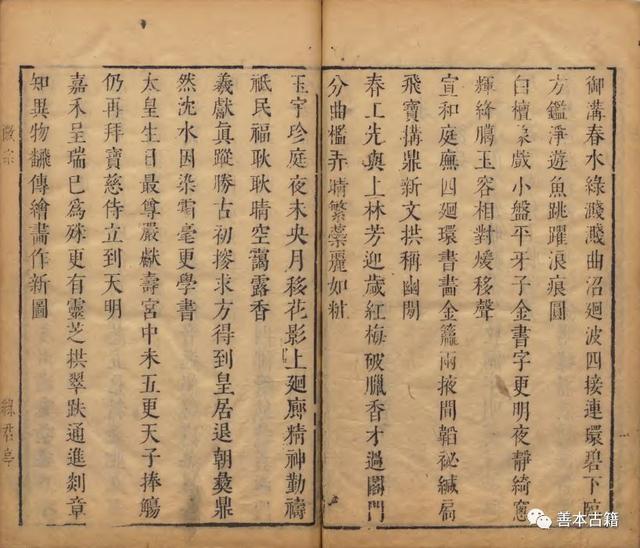 御溝春水綠濺濺曲沼廻波四接連環碧下臨
方鑑淨遊魚跳躍浪痕圓
白檀象戲小盤平牙子金書字更明夜靜綺窓
輝絳臈玉容相對煖移聲
宣和庭廡四廻環書畵金籯兩掖間韜祕緘扃
飛寶搆鼎新文拱稱幽閒
春工先與上林芳迎歲紅梅破臘香才過閣門
分曲檻弄晴繁蘂麗如粧
玉宇珍庭夜未央月移花影上廻廊精神勤禱
祗民福耿耿晴空靄露香
羲獻眞蹤勝古初搜求方得到皇居退朝彝鼎
然沈水因染霜毫更學書
太皇生日最尊嚴獻壽宮中未五更天子捧觴
仍再拜寶慈侍立到天明
嘉禾呈瑞已爲殊更有靈芝拱翠趺通進剡章
知異物傳繪畵作新圖
徽宗
綠君亭
善本古籍